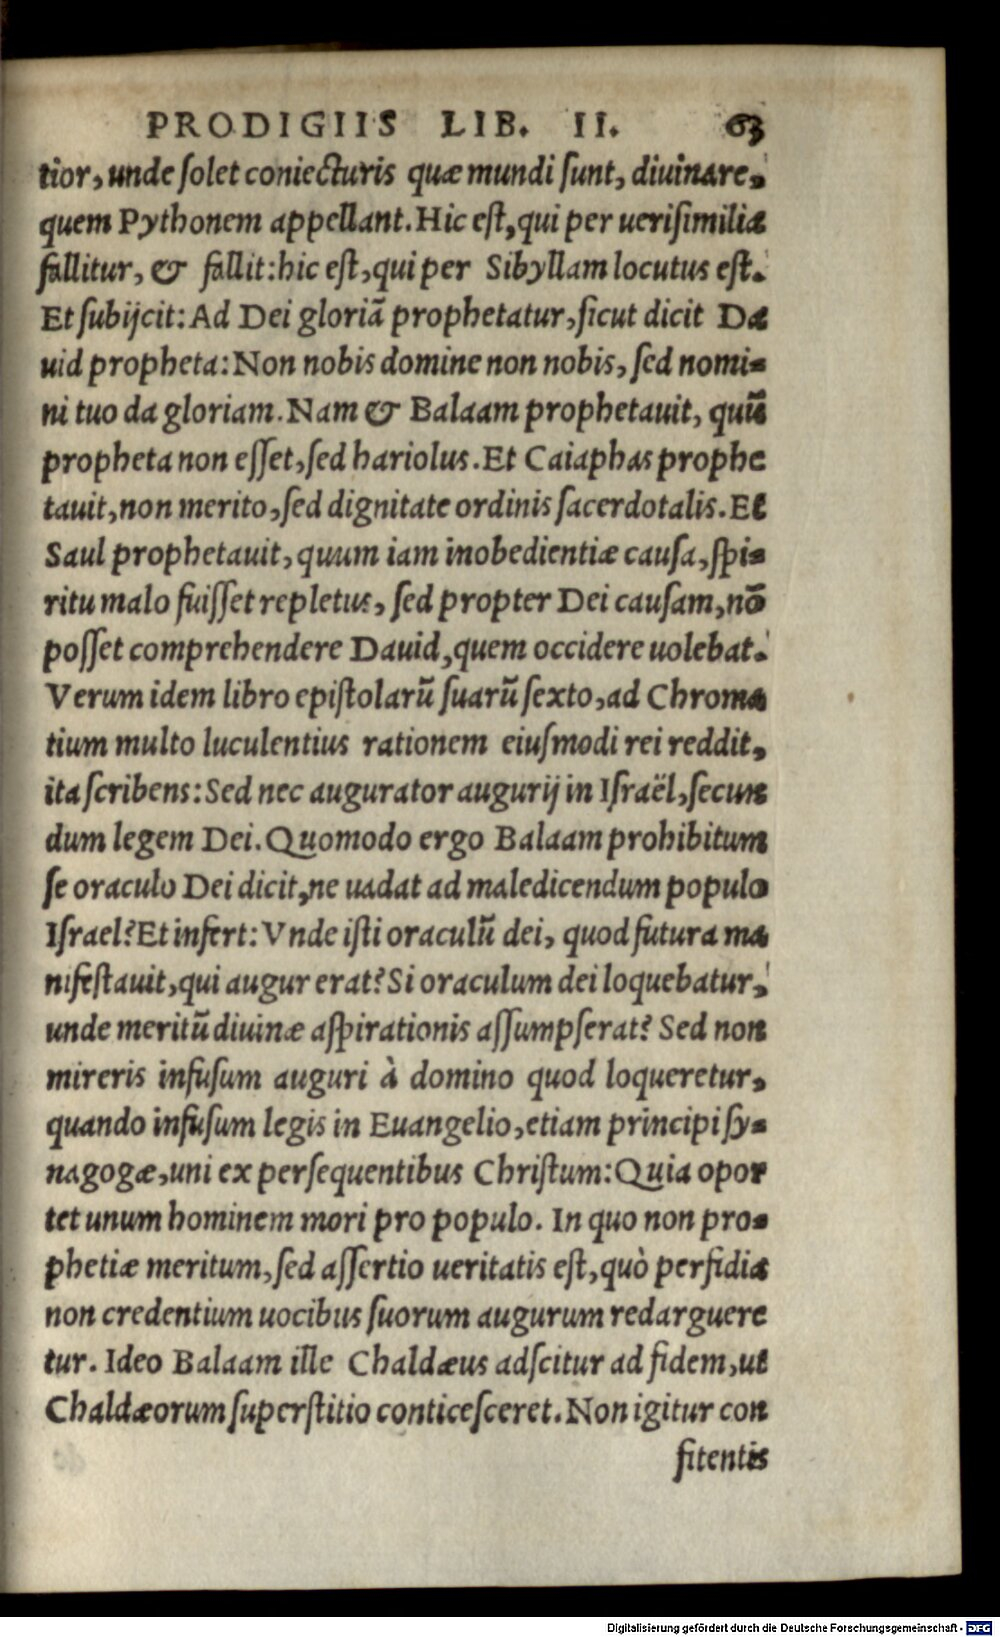 PRODIGIIS LIB. II. 63
tior, unde ſolet coniecturis quæ mundi ſunt, diuinare,
quem Pythonem appellant. Hic eſt, qui per ueriſimilia
fallitur, & fallit: hic eſt, qui per Sibyllam locutus eſt.
Et ſubijcit: Ad Dei gloriā prophetatur, ſicut dicit Da
uid propheta: Non nobis domine non nobis, ſed nomi-
ni tuo da gloriam. Nam & Balaam prophetauit, quū
propheta non eſſet, ſed hariolus. Et Caiaphas prophe
tauit, non merito, ſed dignitate ordinis ſacerdotalis. Et
Saul prophetauit, quum iam inobedientiæ cauſa, ſpi-
ritu malo fuiſſet repletus, ſed propter Dei cauſam, nō
poſſet comprehendere Dauid, quem occidere uolebat.
Verum idem libro epiſtolarū ſuarū ſexto, ad Chroma
tium multo luculentius rationem eiuſmodi rei reddit,
ita ſcribens: Sed nec augurator augurij in Iſraël, ſecun
dum legem Dei. Quomodo ergo Balaam prohibitum
ſe oraculo Dei dicit, ne uadat ad maledicendum populo
Iſrael? Et infert: Vnde iſti oraculū dei, quod futura ma
nifeſtauit, qui augur erat? Si oraculum dei loquebatur,
unde meritū diuinæ aſpirationis aſſumpſerat? Sed non
mireris infuſum auguri à domino quod loqueretur,
quando infuſum legis in Euangelio, etiam principi ſy-
nagogæ, uni ex perſequentibus Chriſtum: Quia opor
tet unum hominem mori pro populo. In quo non pro-
phetiæ meritum, ſed aſſertio ueritatis eſt, quò perfidia
non credentium uocibus ſuorum augurum redarguere
tur. Ideo Balaam ille Chaldæus adſcitur ad fidem, ut
Chaldæorum ſuperſtitio conticeſceret. Non igitur con
fitentis
Digitalisierung gefördert durch die Deutsche Forschungsgemeinschaft - DFG